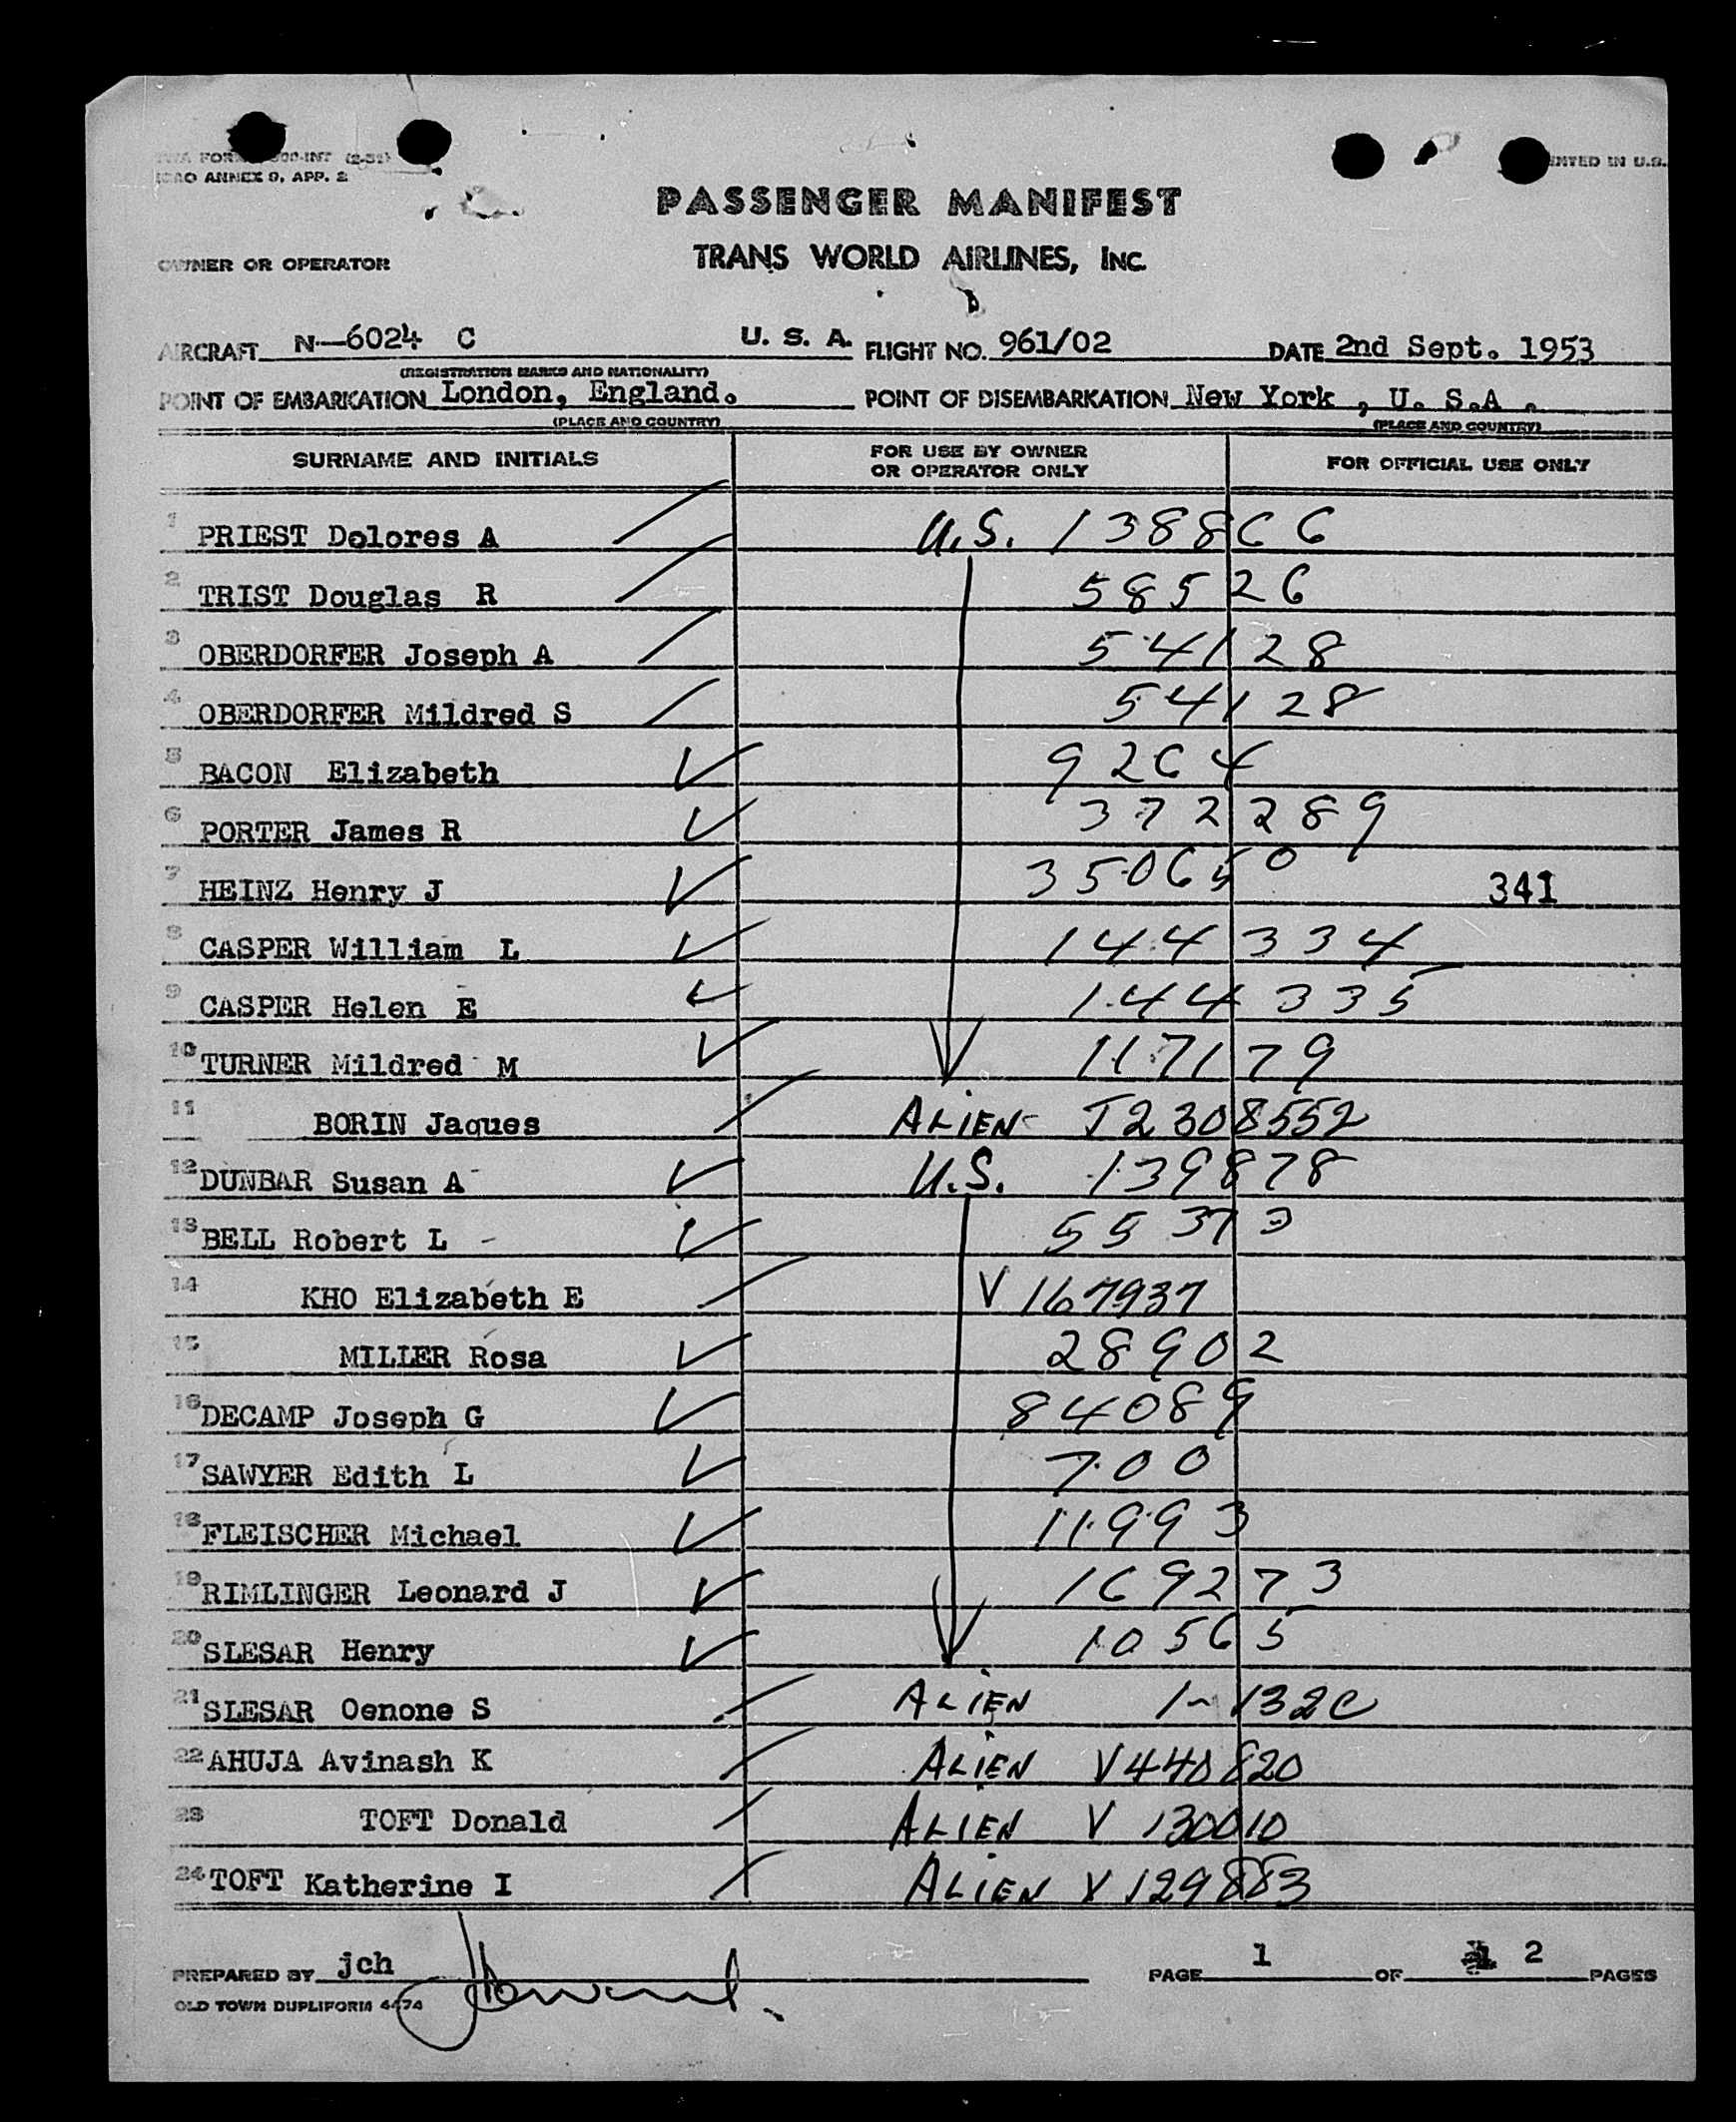 TWA FORM 300-INT (2-51)
ICAO ANNEX 9, APP. 2
PRINTED IN U.S.
PASSENGER MANIFEST
OWNER OR OPERATOR TRANS WORLD AIRLINES, INC.
AIRCRAFT N-6024 C U. S. A. FLIGHT NO. 961/02 DATE 2nd Sept. 1953
(REGISTRATION MARKS AND NATIONALITY)
POINT OF EMBARKATION London, England. POINT OF DISEMBARKATION New York , U. S.A .
(PLACE AND COUNTRY) (PLACE AND COUNTRY)
SURNAME AND INITIALS FOR USE BY OWNER OR OPERATOR ONLY FOR OFFICIAL USE ONLY
1 PRIEST Dolores A U.S. 138866
2 TRIST Douglas R 58526
3 OBERDORFER Joseph A 54128
4 OBERDORFER Mildred S 54128
5 BACON Elizabeth 9264
6 PORTER James R 372289
7 HEINZ Henry J 350650 341
8 CASPER William L 144334
9 CASPER Helen E 144335
10 TURNER Mildred M 117179
11 BORIN Jaques ALIEN J2308552
12 DUNBAR Susan A U.S. 139878
13 BELL Robert L - 55373
14 KHO Elizabeth E V 167937
15 MILLER Rosa 28902
16 DECAMP Joseph G 84089
17 SAWYER Edith L 700
18 FLEISCHER Michael 11993
19 RIMLINGER Leonard J 169273
20 SLESAR Henry 10565
21 SLESAR Oenone S ALIEN
22 AHUJA Avinash K ALIEN V440820
23 TOFT Donald ALIEN V 130010
24 TOFT Katherine I ALIEN V 129883
PREPARED BY jch PAGE 1 OF 2 PAGES
OLD TOWN DUPLIFORM 4474